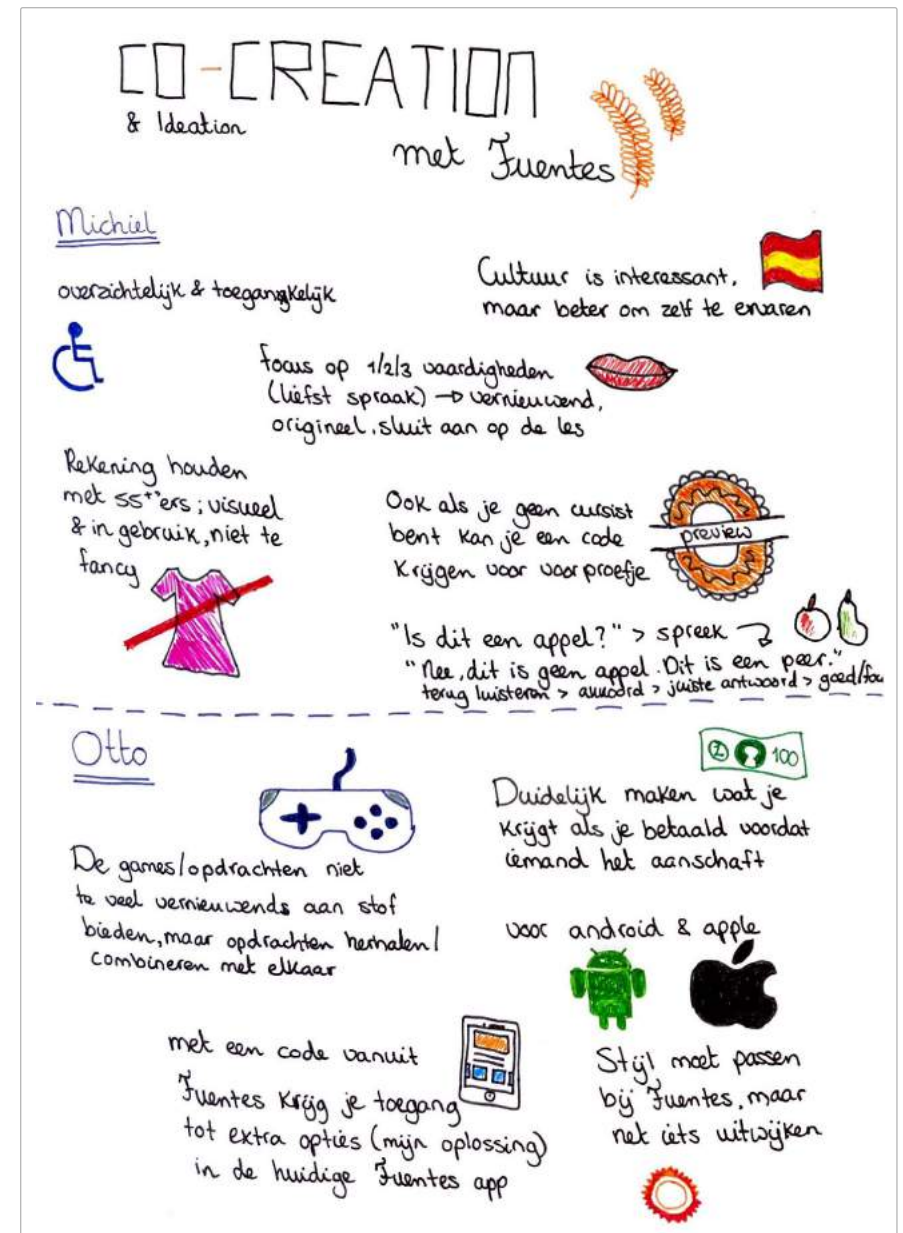 CO-CREATION
& Ideation
met Fuentes
Michiel
overzichtelijk & toegangkelijk
Cultuur is interessant,
maar beter om zelf te ervaren
focus op 1/2/3 vaardigheden
(liefst spraak) → vernieuwend,
origineel, sluit aan op de les
Rekening houden
met 55+'ers; visueel
& in gebruik, niet te
fancy
Ook als je geen cursist
bent kan je een code
krijgen voor voorproefje
preview
"Is dit een appel?" > spreek
"Nee, dit is geen appel. Dit is een peer."
terug luisteren > akkoord > juiste antwoord > goed/fou
Otto
100
De games/opdrachten niet
te veel vernieuwends aan stof
bieden, maar opdrachten herhalen/
combineren met elkaar
Duidelijk maken wat je
krijgt als je betaald voordat
iemand het aanschaft
voor android & apple
met een code vanuit
Fuentes krijg je toegang
tot extra opties (mijn oplossing)
in de huidige Fuentes app
Stijl moet passen
bij Fuentes, maar
net iets uitwijken